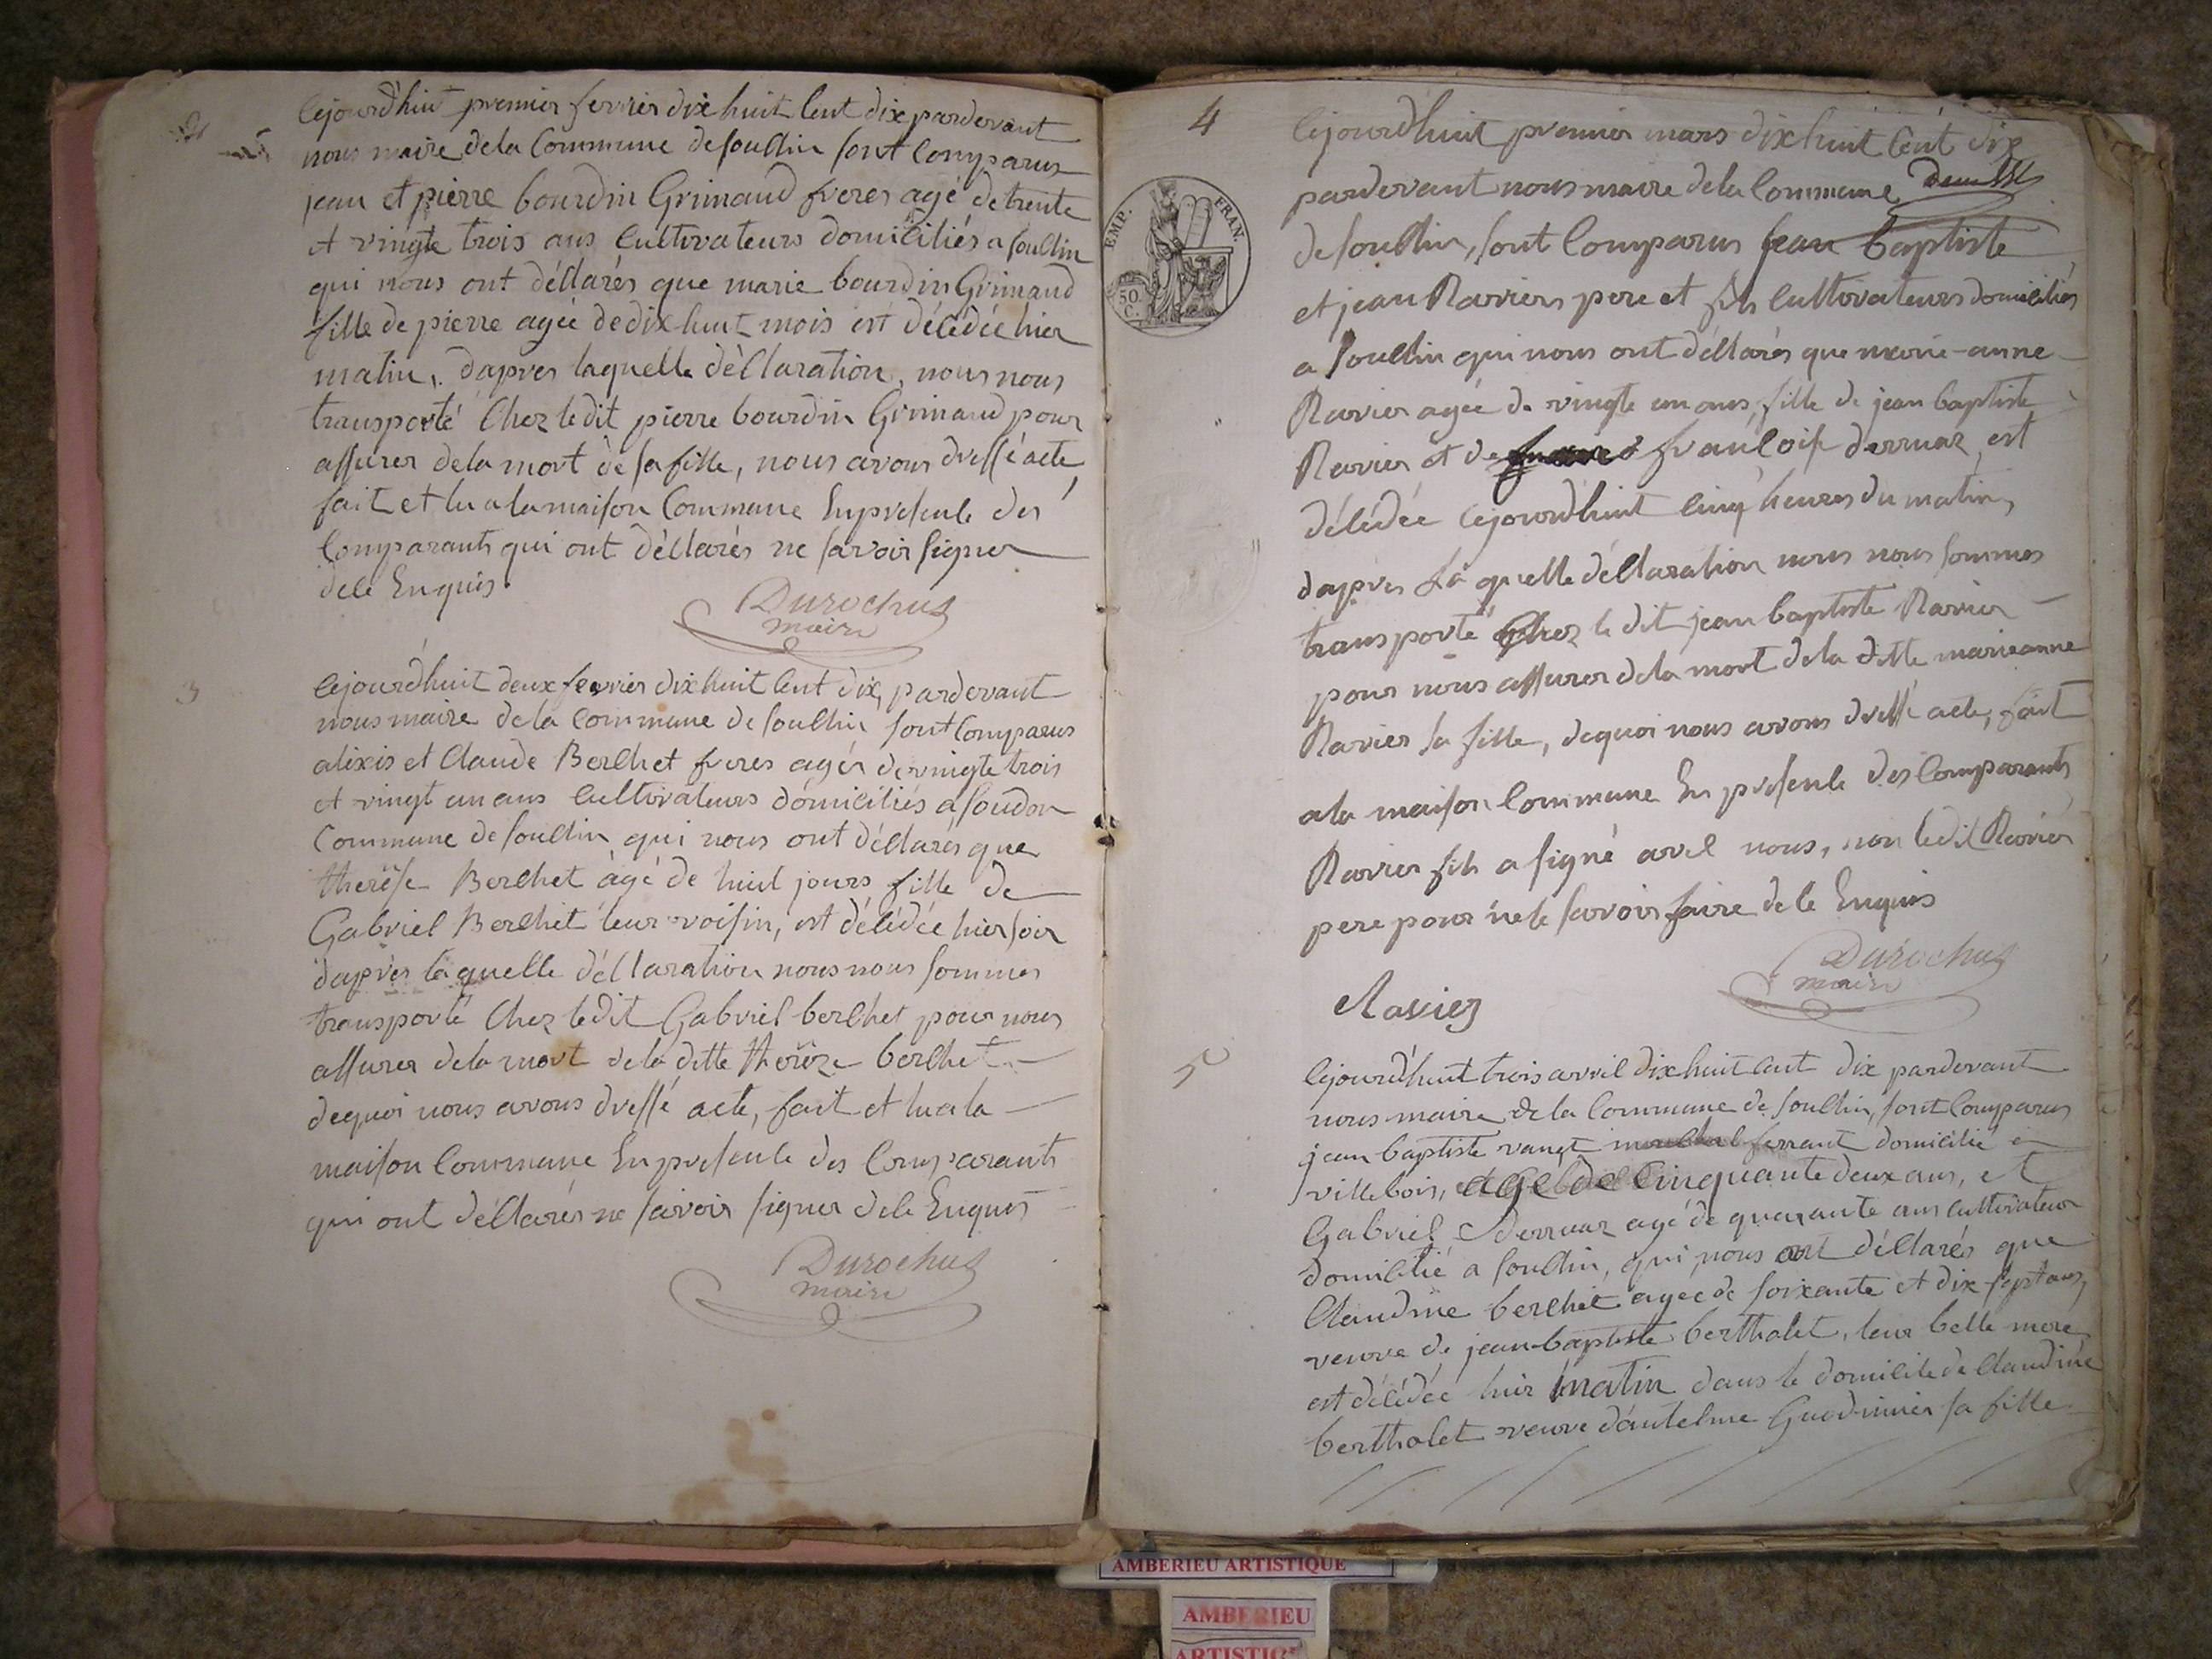 2
Cejourd'huit premier fevrier dix huit Cent dix pardevant
nous maire dela Commune de souclin sont Comparus
jean et pierre bourdin Grimaud freres agé de trente
et vingte trois ans Cultivateurs domiciliés a souclin
qui nous ont déclarés que marie bourdin Grimaud
fille de pierre agée de dix huit mois est décédée hier
matin, dapres laquelle déclaration, nous nous
transporté Chez ledit pierre bourdin Grimaud pour
assurer dela mort de sa fille, nous avons dressé acte
fait et lu a la maison Commune En presence des
Comparants qui ont déclarés ne savoir signer
de ce Enquis
Durochat
maire
3
Cejourd'huit deux fevrier dix huit Cent dix, pardevant
nous maire de la Commune de souclin sont Comparus
alixis et Claude Berchet freres agés de vingte trois
et vingt un ans Cultivateurs domiciliés a soudon
Commune de souclin qui nous ont déclarés que
therèse Berchet agé de huit jours fille de
Gabriel Berchet leur voisin, est décédée hier soir
dapres laquelle déclaration nous nous sommes
transporté Chez ledit Gabriel berchet pour nous
assurer dela mort dela ditte therèze berchet
dequoi nous avons dressé acte, fait et lu a la
maison Commune En presence des Comparants
qui ont déclarés ne savoir signer de ce Enquis
Durochat
maire
4
Cejourd'huit premier mars dix huit Cent dix
pardevant nous maire dela Commune
de souclin, sont Comparus jean baptiste
et jean Ravier pere et fils Cultivateurs domiciliés
a souclin qui nous ont déclarés que marie-anne
Ravier agée de vingte un ans, fille de jean baptiste
Ravier et de francoise derruaz est
décédée Cejourd'huit Cinq heures du matin,
dapres La quelle déclaration nous nous sommes
transporté Chez le dit jean baptiste Ravier
pour nous assurer dela mort dela ditte marieanne
Ravier sa fille, dequoi nous avons dressé acte, fait
a la maison Commune En presence des Comparants
Ravier fils a signé avec nous, non ledit Ravier
pere pour ne le savoir faire de ce Enquis
Durochat
maire
Ravier
EMP. FRAN.
50.
C.
5
Cejourd'huit trois avril dix huit Cent dix pardevant
nous maire de la Commune de souclin, sont Comparus
jean baptiste vanet marechal ferrant domicilié a
villebois, agé de Cinquante deux ans, et
Gabriel Derruaz agé de quarante ans Cultivateur
domicilié a souclin, qui nous ont déclarés que
Claudine berchet agée de soixante et dix sept ans,
veuve de jean-baptiste berthalet, leur belle mere
est décédée hier matin dans le domicile de Claudine
berthalet veuve d'antelme Guodinier sa fille
AMBERIEU ARTISTIQUE
AMBERIEU
ARTISTIQUE